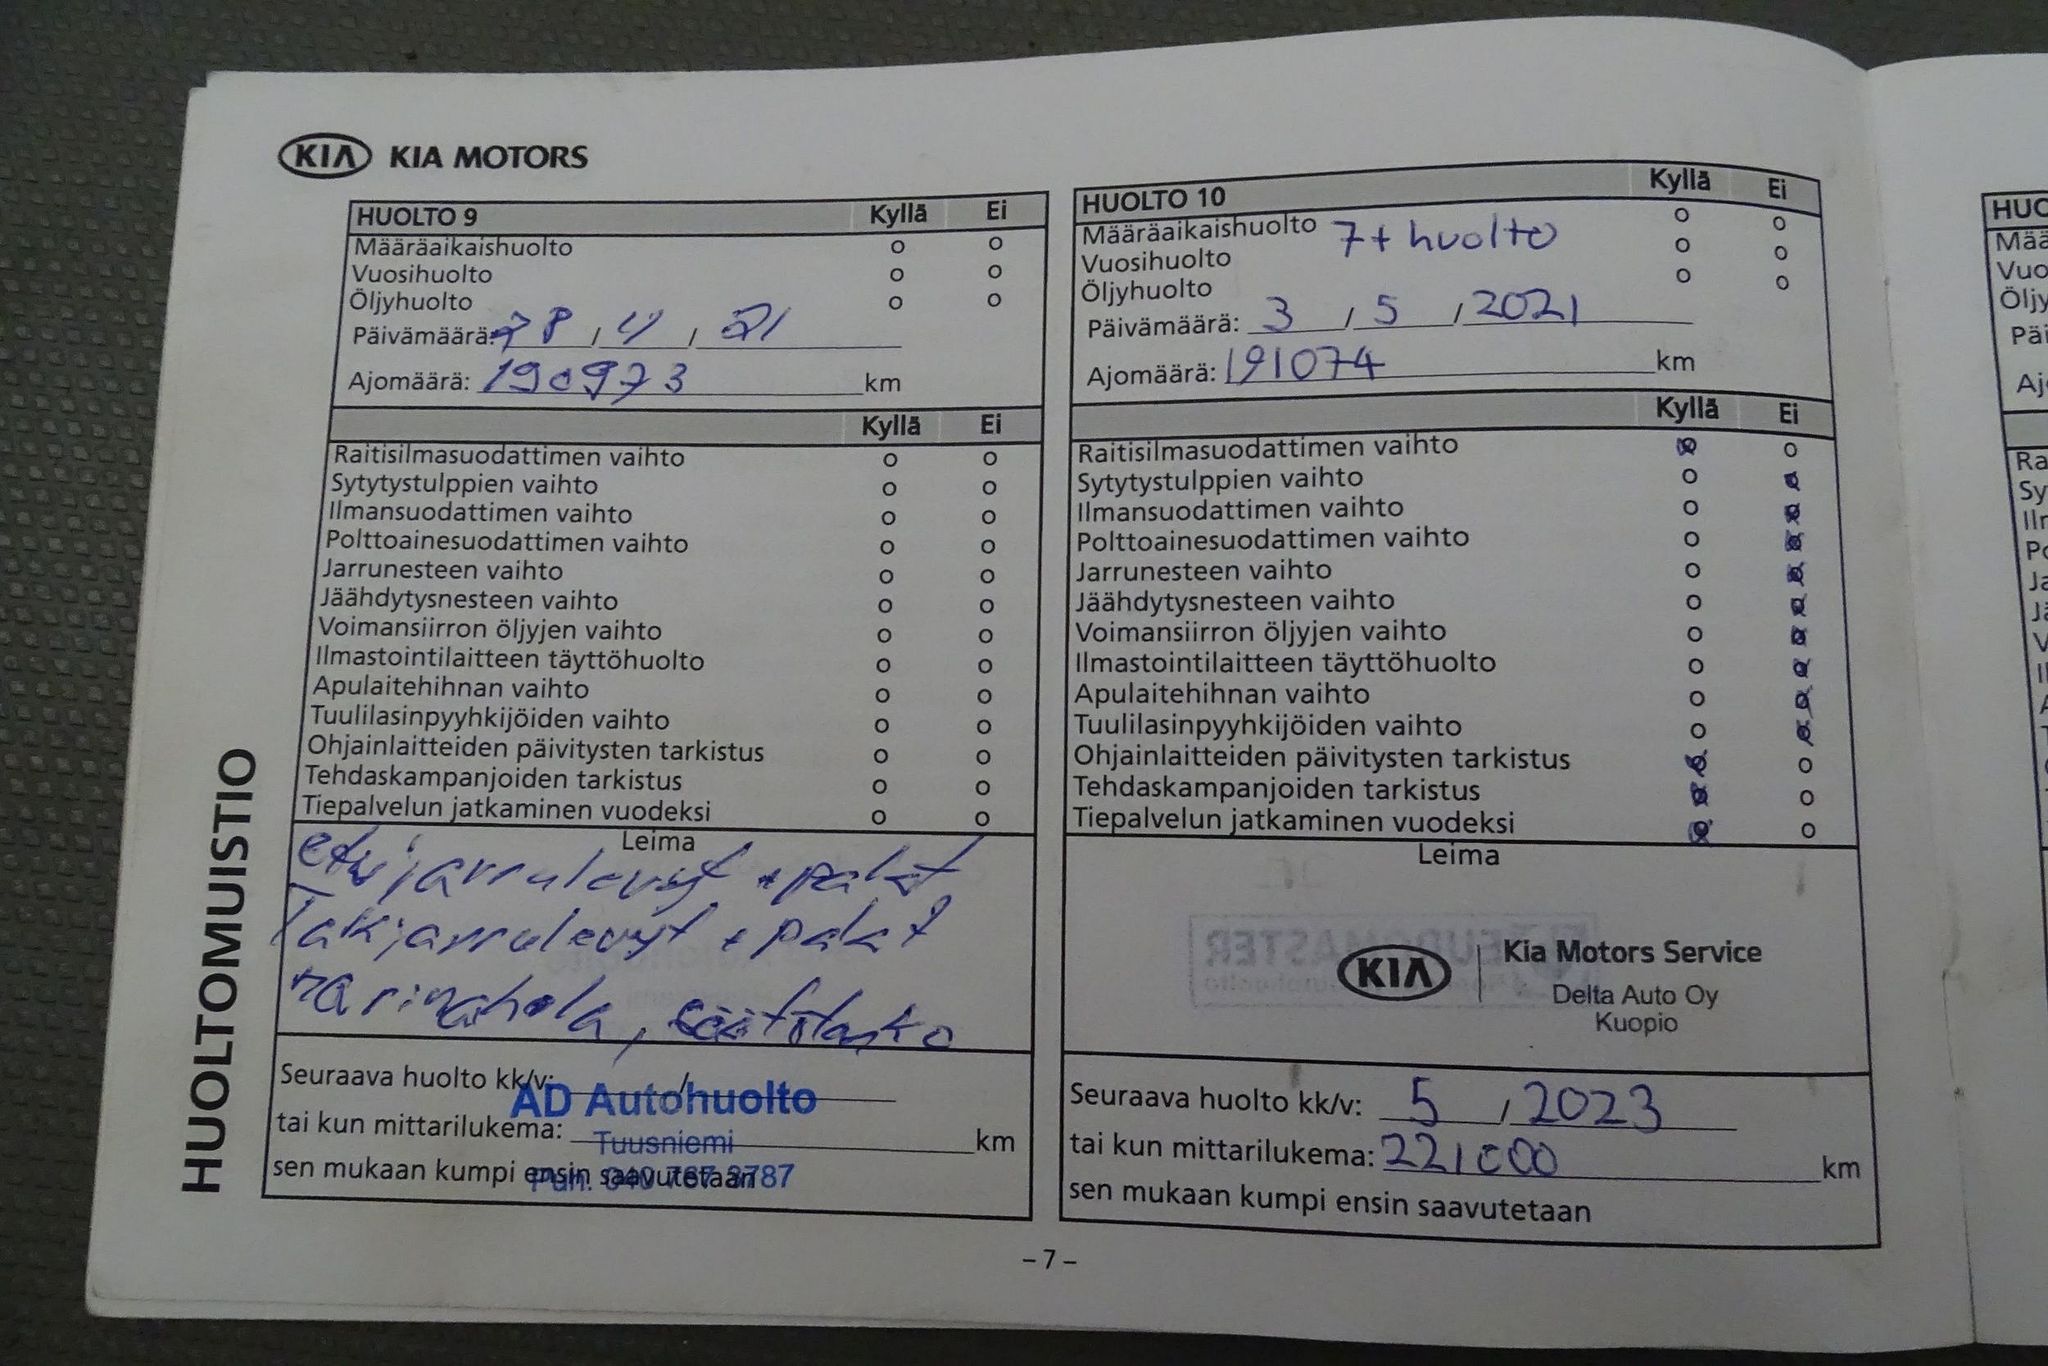 KIA KIA MOTORS
HUOLTOMUISTIO
HUOLTO 9 Kyllä Ei
Määräaikaishuolto o o
Vuosihuolto o o
Öljyhuolto o o
Päivämäärä: / 4 / 21
Ajomäärä: 190973 km
Kyllä Ei
Raitisilmasuodattimen vaihto o o
Sytytystulppien vaihto o o
Ilmansuodattimen vaihto o o
Polttoainesuodattimen vaihto o o
Jarrunesteen vaihto o o
Jäähdytysnesteen vaihto o o
Voimansiirron öljyjen vaihto o o
Ilmastointilaitteen täyttöhuolto o o
Apulaitehihnan vaihto o o
Tuulilasinpyyhkijöiden vaihto o o
Ohjainlaitteiden päivitysten tarkistus o o
Tehdaskampanjoiden tarkistus o o
Tiepalvelun jatkaminen vuodeksi o o
Leima
etujarrulevyt + palat
Takjarrulevyt + palat
Seuraava huolto kk/v: /
AD Autohuolto
tai kun mittarilukema: km
Tuusniemi
sen mukaan kumpi ensin saavutetaan
Puh. 040 767 3787
HUOLTO 10 Kyllä Ei
Määräaikaishuolto 7+ huolto o o
Vuosihuolto o o
Öljyhuolto o o
Päivämäärä: 3 / 5 / 2021
Ajomäärä: 191074 km
Kyllä Ei
Raitisilmasuodattimen vaihto o o
Sytytystulppien vaihto o o
Ilmansuodattimen vaihto o o
Polttoainesuodattimen vaihto o o
Jarrunesteen vaihto o o
Jäähdytysnesteen vaihto o o
Voimansiirron öljyjen vaihto o o
Ilmastointilaitteen täyttöhuolto o o
Apulaitehihnan vaihto o o
Tuulilasinpyyhkijöiden vaihto o o
Ohjainlaitteiden päivitysten tarkistus o o
Tehdaskampanjoiden tarkistus o o
Tiepalvelun jatkaminen vuodeksi o o
Leima
KIA Kia Motors Service
Delta Auto Oy
Kuopio
Seuraava huolto kk/v: 5 / 2023
tai kun mittarilukema: 221000 km
sen mukaan kumpi ensin saavutetaan
– 7 –